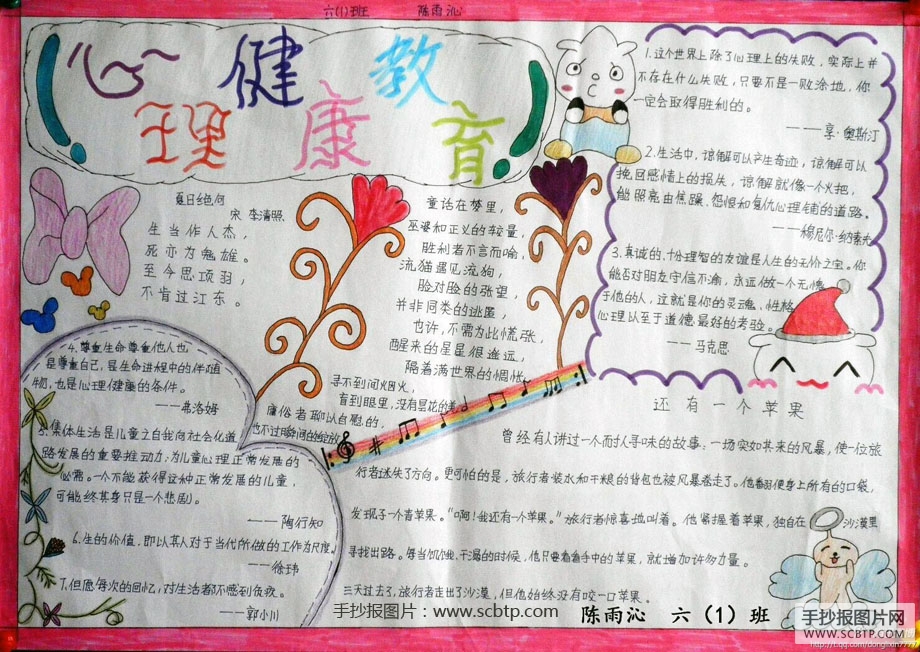 六(1)班 陈雨沁
心理健康教育
1.这个世界上除了心理上的失败，实际上并
不存在什么失败，只要不是一败涂地，你
一定会取得胜利的。
——享·奥斯汀
2.生活中，谅解可以产生奇迹，谅解可以
挽回感情上的损失，谅解就像一个火把，
能照亮由焦躁、怨恨和复仇心理铺的道路。
——穆尼尔·纳素夫
3.真诚的、十分理智的友谊是人生的无价之宝。你
能否对朋友守信不渝，永远做一个无愧
于他的人，这就是你的灵魂、性格、
心理以至于道德最好的考验。
——马克思
夏日绝句
宋 李清照
生当作人杰，
死亦为鬼雄。
至今思项羽，
不肯过江东。
童话在梦里，
巫婆和正义的较量，
胜利者不言而喻，
流猫遇见流狗，
脸对脸的张望，
并非同类的逃匿，
也许，不需为此慌张，
醒来的星星很遥远，
隔着满世界的惆怅
寻不到间火烟火，
盲到眼里，没有昙花的美
庸俗者聊以自慰的，
也不过瞬间的绽放
4.尊重生命尊重他人也
是尊重自己，是生命进程中的伴随
物，也是心理健康的条件。
——弗洛姆
5.集体生活是儿童之自我向社会化道
路发展的重要推动力；为儿童心理正常发展的
必需。一个不能获得这种正常发展的儿童，
可能终其身只是一个悲剧。
——陶行知
6.生的价值，即以其人对于当代所做的工作为尺度。
——徐玮
7.但愿每次的回忆，对生活都不感到负疚。
——郭小川
还有一个苹果
曾经有人讲过一个耐人寻味的故事：一场突如其来的风暴，使一位旅
行者迷失了方向。更可怕的是，旅行者装水和干粮的背包也被风暴卷走了。他翻便身上所有的口袋，
发现了一个青苹果。“啊！我还有一个苹果。”旅行者惊喜地叫着。他紧握着苹果，独自在沙漠里
寻找出路。每当饥饿、干渴的时候，他只要看看手中的苹果，就增加许多力量。
三天过去了，旅行者走出了沙漠，但他始终没有咬一口苹果。
手抄报图片：www.scbtp.com
陈雨沁 六（1）班
手抄报图片网
WWW.SCBTP.COM